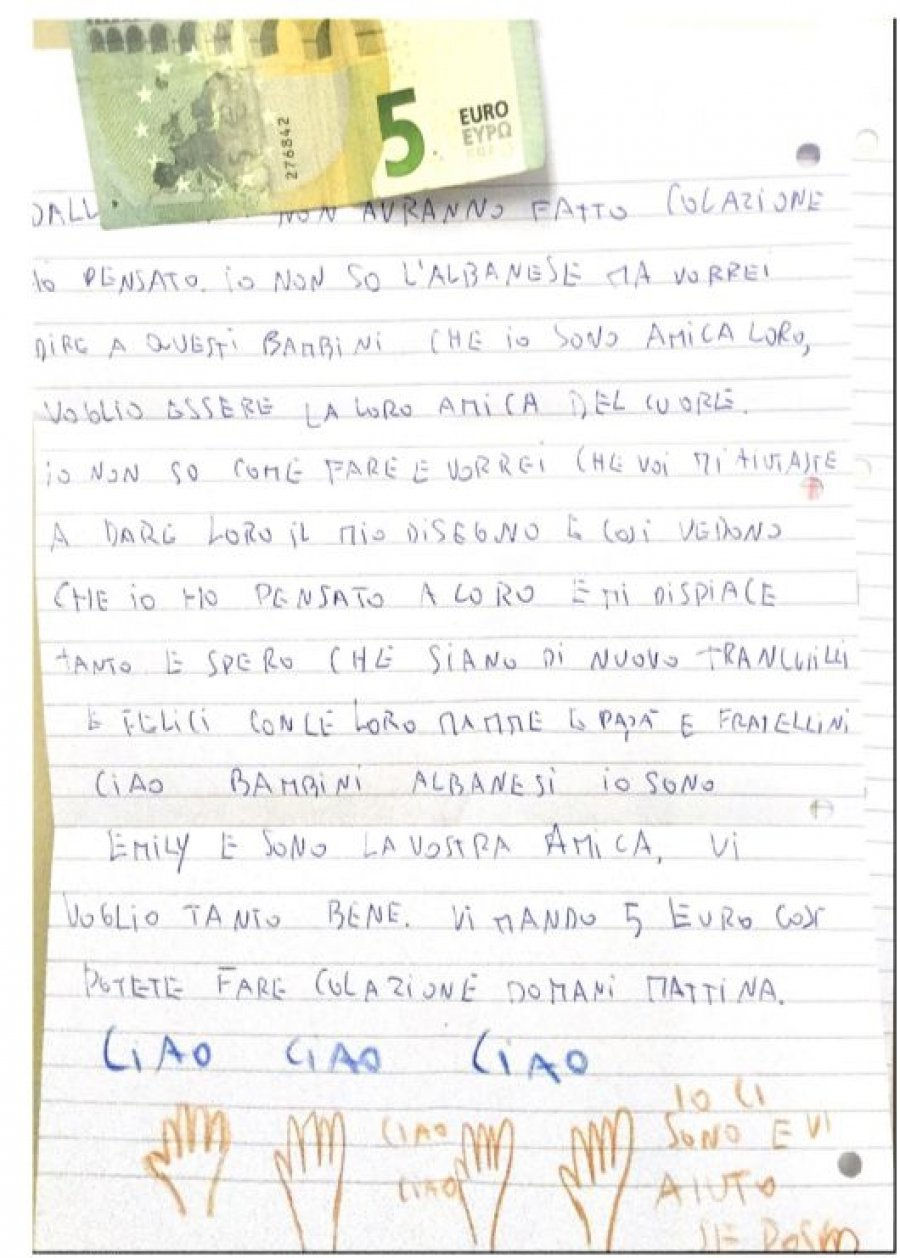 5 EURO
ΕΥΡΩ
276842
DALL NON AVRANNO FATTO COLAZIONE
HO PENSATO. iO NON SO L'ALBANESE MA VORREI
DIRE A QUESTI BAMBINI CHE io SONO AMICA LORO,
VOGLIO ESSERE LA LORO AMICA DEL CUORE.
iO NON SO COME FARE E VORREI CHE VOI MI AIUTASTE
A DARE LORO IL MIO DISEGNO E COSI VEDONO
CHE iO HO PENSATO A LORO E MI DISPIACE
TANTO E SPERO CHE SIANO DI NUOVO TRANQUILLI
E FELICI CON LE LORO MAMME E PAPÀ E FRATELLINI
CIAO BAMBINI ALBANESI iO SONO
EMILY E SONO LA VOSTRA AMICA, VI
VOGLIO TANTO BENE. VI MANDO 5 EURO COSÌ
POTETE FARE COLAZIONE DOMANI MATTINA.
CIAO CIAO CIAO
CIAO
CIAO
IO CI
SONO E VI
AIUTO
SE POSSO